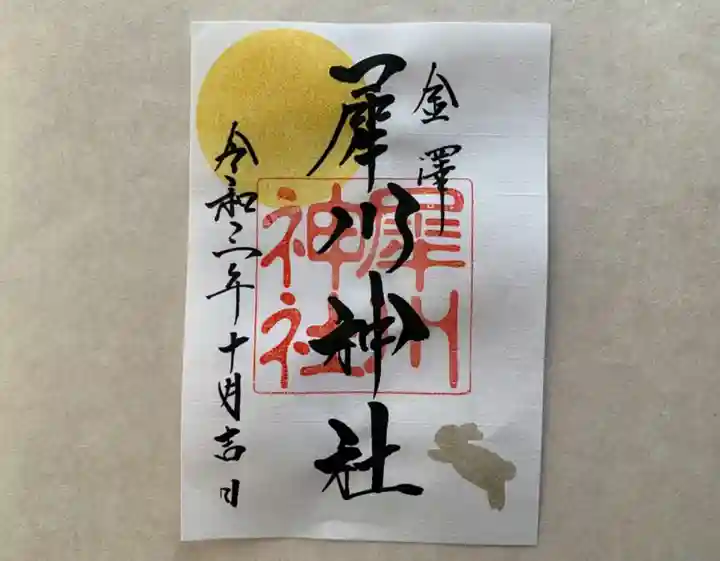 金澤
犀川神社
令和三年十月吉日
犀川
神社